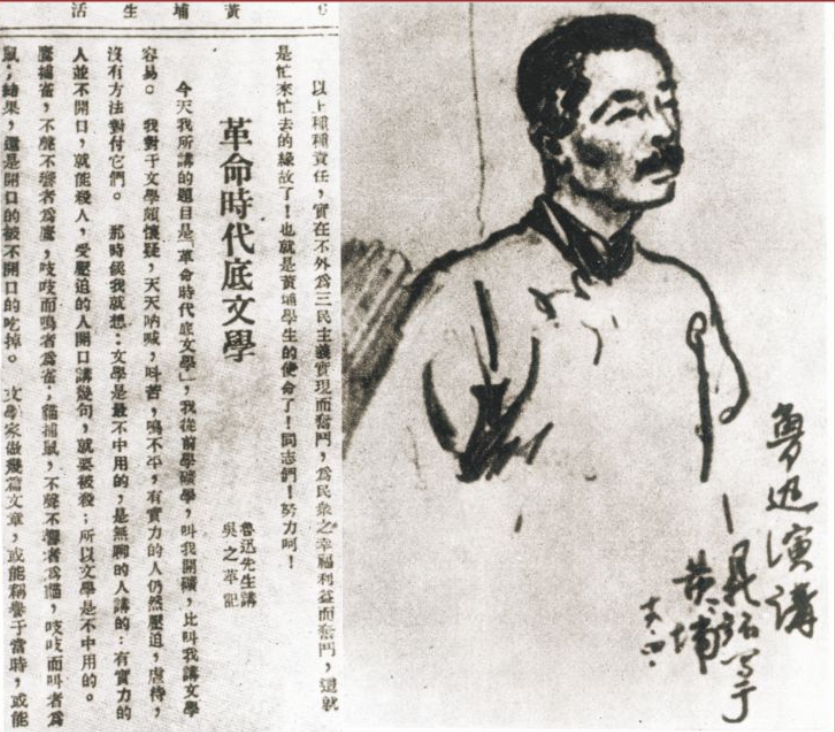 黃埔生活
以上種種責任，實在不外爲三民主義實現而奮鬥，爲民衆之幸福利益而奮鬥，這就
是忙來忙去的緣故了！也就是黃埔學生的使命了！同志們！努力呵！
革命時代底文學
魯迅先生講
吳之苹記
今天我所講的題目是「革命時代底文學」，我從前學礦學，叫我開礦，比叫我講文學
容易。 我對于文學頗懷疑，天天吶喊，叫苦，鳴不平，有實力的人仍然壓迫，虐待，
沒有方法對付它們。 那時候我就想：文學是最不中用的，是無聊的人講的：有實力的
人並不開口，就能殺人，受壓迫的人開口講幾句，就要被殺；所以文學是不中用的。
鷹捕雀，不聲不響者爲鷹，吱吱而鳴者爲雀；貓捕鼠，不聲不響者爲貓，吱吱而叫者爲
鼠；結果，還是開口的被不開口的吃掉。 文學家做幾篇文章，或能稱譽于當時，或能
魯迅演講
写于
黃埔